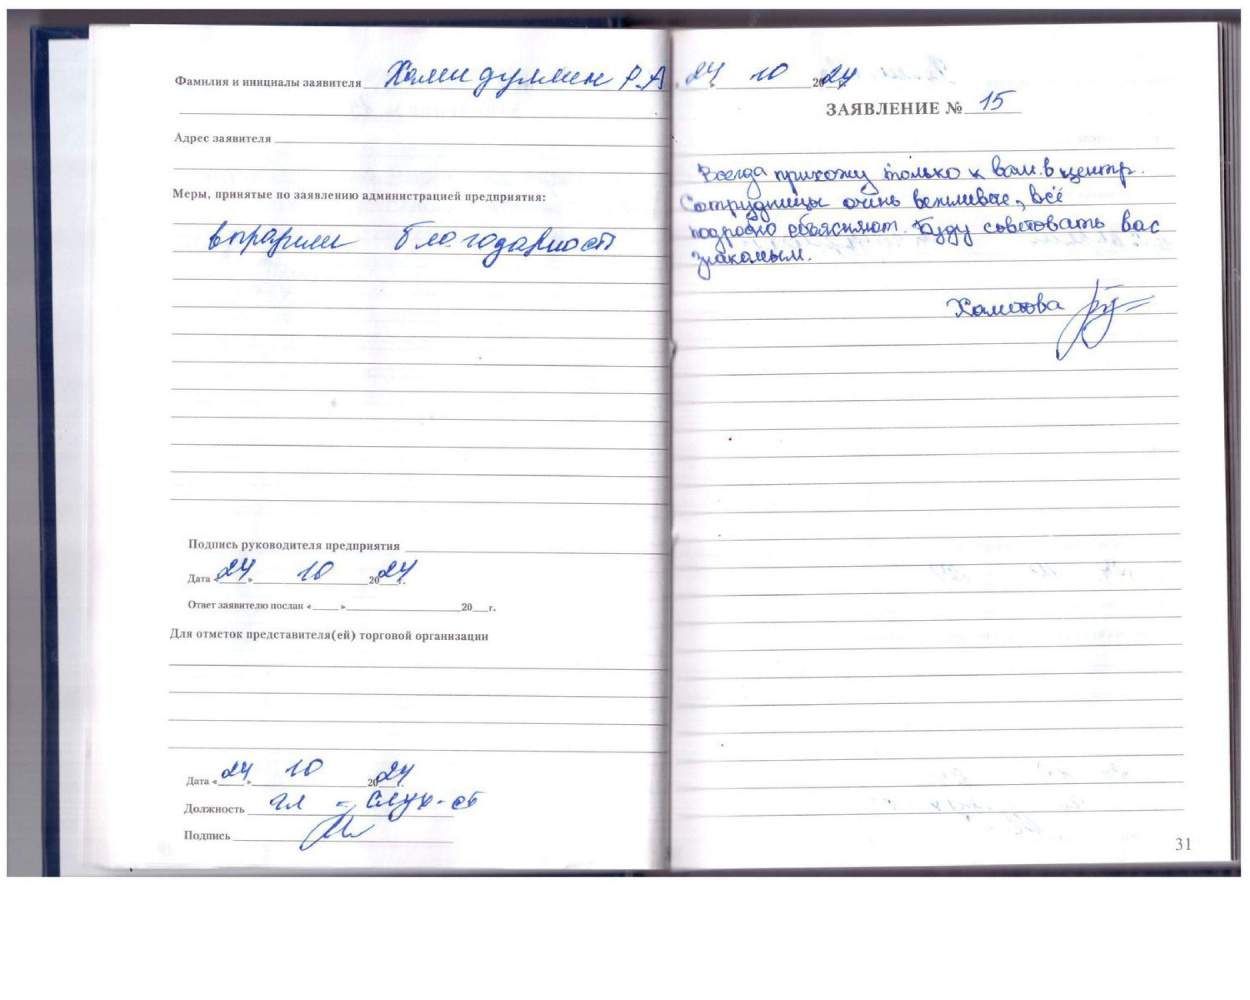 Фамилия и инициалы заявителя Хамидуллин Р.А
Адрес заявителя
Меры, принятые по заявлению администрацией предприятия:
выразили благодарность
Подпись руководителя предприятия
Дата «24» 10 2024 г.
Ответ заявителю послан «___» ___ 20__ г.
Для отметок представителя(ей) торговой организации
Дата «24» 10 2024
Должность гл - спец-ст
Подпись
24 10 2024
ЗАЯВЛЕНИЕ № 15
Всегда прихожу только к вам в центр.
Сотрудницы очень вежливые, всё
подробно объясняют. Буду советовать вас
знакомым.
Хамитова
31